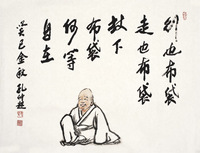 行也布袋
走也布袋
放下
布袋
何等
自在
癸巳金秋孔